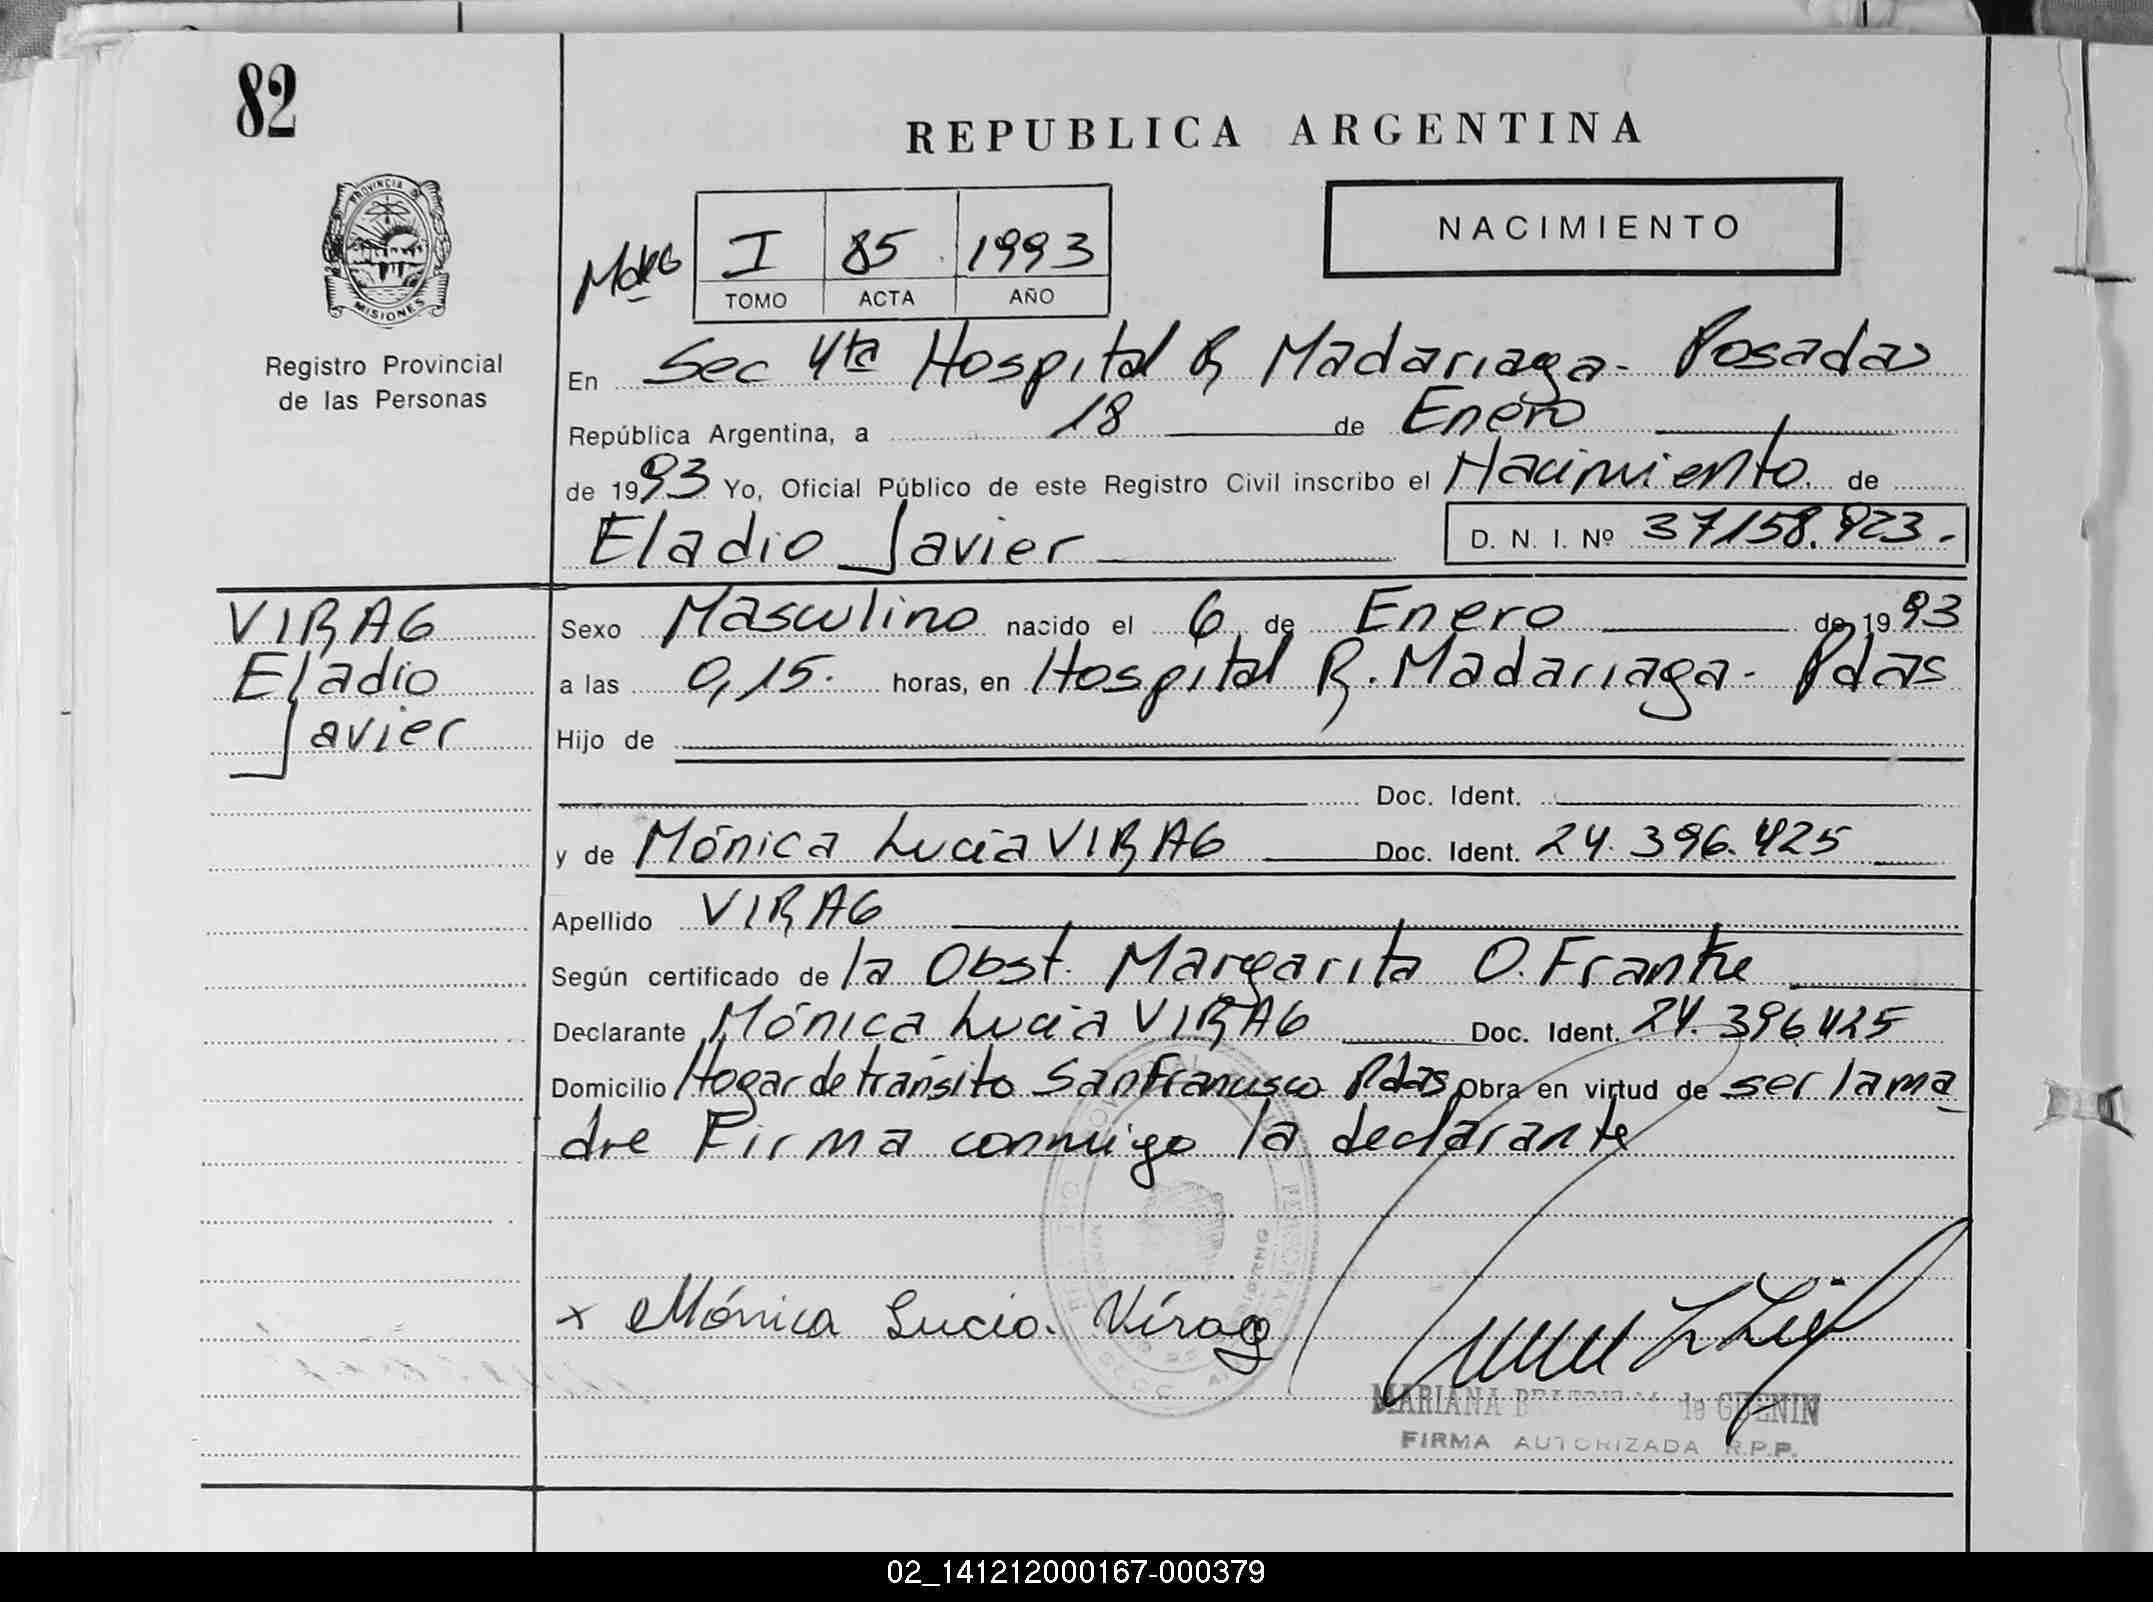 82
REPUBLICA ARGENTINA
PROVINCIA DE
MISIONES
Registro Provincial
de las Personas
I 85 1993
TOMO ACTA AÑO
NACIMIENTO
En Sec 4ta Hospital R Madariaga - Posadas
República Argentina, a 18 de Enero
de 1993 Yo, Oficial Público de este Registro Civil inscribo el Nacimiento de
Eladio Javier D. N. I. Nº 37158.923.-
VIRAG
Eladio
Javier
Sexo Masculino nacido el 6 de Enero de 1993
a las 0,15. horas, en Hospital R. Madariaga - Pdas
Hijo de
Doc. Ident.
y de Mónica Lucia VIRAG Doc. Ident. 24.396.425
Apellido VIRAG
Según certificado de la Obst. Margarita O. Franke
Declarante Mónica Lucia VIRAG Doc. Ident. 24.396425
Domicilio Hogar de transito San Francisco Pdas Obra en virtud de ser la ma
dre Firma conmigo la declarante
x Mónica Lucia Virag
MARIANA de GUENIN
FIRMA AUTORIZADA R.P.P.
02_141212000167-000379